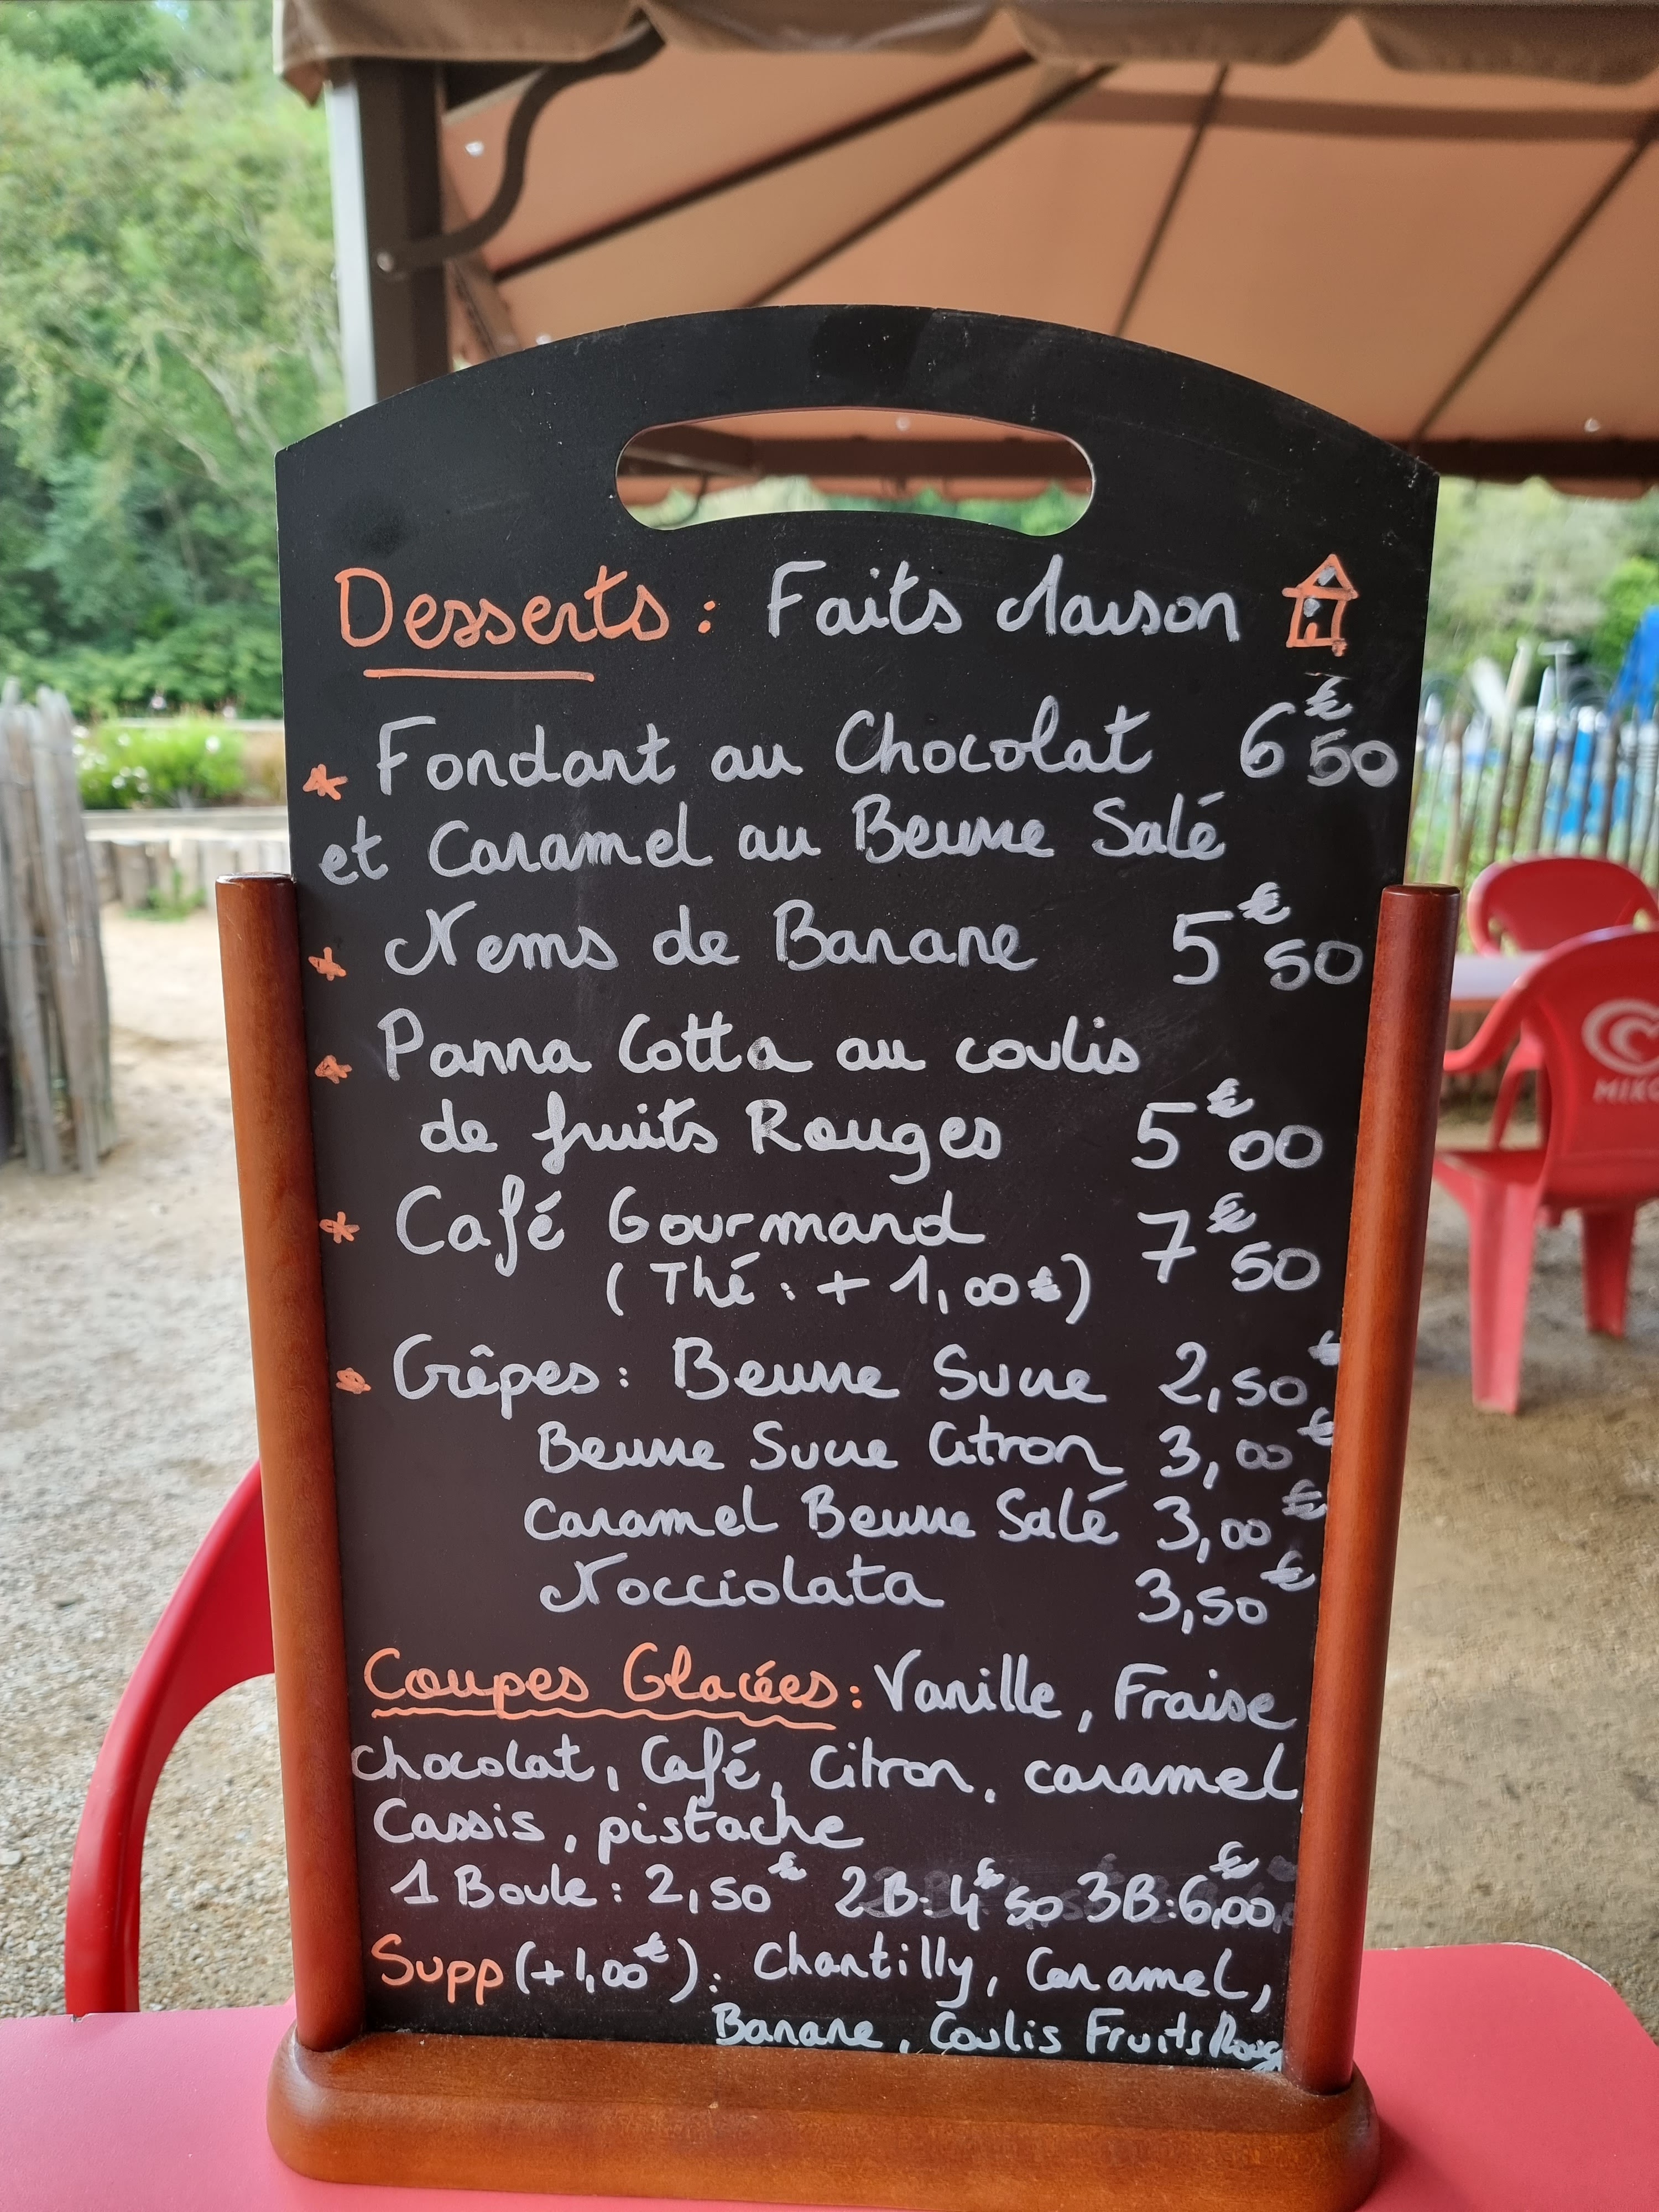 Desserts : Faits Maison
* Fondant au Chocolat 6€50
et Caramel au Beurre Salé
* Nems de Banane 5€50
* Panna Cotta au coulis
de fruits Rouges 5€00
* Café Gourmand 7€50
(Thé : + 1,00€)
* Crêpes : Beurre Sucre 2,50€
Beurre Sucre Citron 3,00€
Caramel Beurre Salé 3,00€
Nocciolata 3,50€
Coupes Glacées : Vanille, Fraise
chocolat, Café, Citron, caramel
Cassis, pistache
1 Boule : 2,50€ 2B: 4€50 3B: 6,00€
Supp (+1,00€) : Chantilly, Caramel,
Banane, Coulis Fruits Roug
MIKO